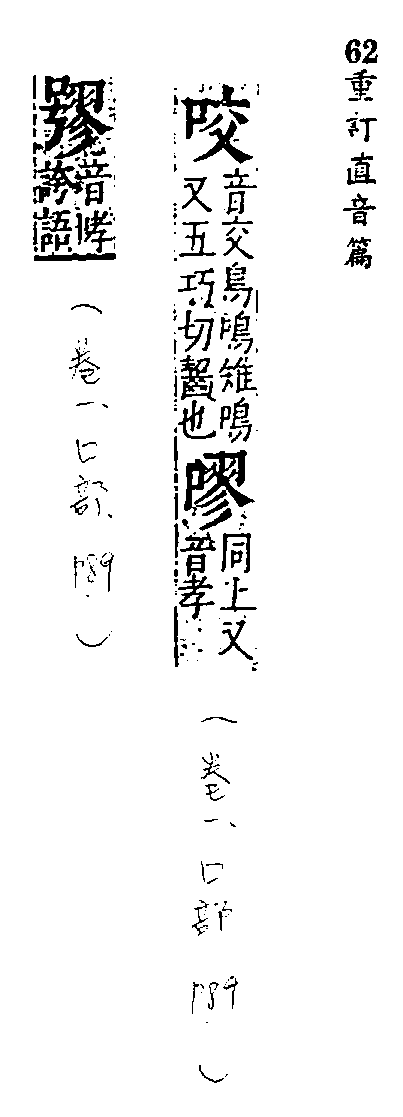 62重訂直音篇
咬
音交鳥鳴雉鳴
又五巧切齧也
嘐
同上又
音孝
(卷一、口部 P89)
音哮
誇語
(卷一、口部、P89)